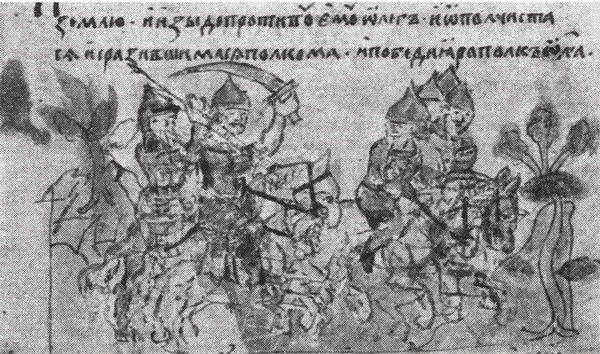 землю · и изыдопротивѹ ємѹ ѡлегъ · и ѡполчиста
сѧ и сразившимасѧ полкома · и победи ꙗрополкъ ѡлга ·